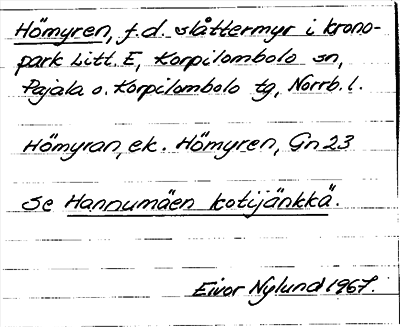 Hömyren, f.d. slåttermyr i krono-
park Litt. E, Korpilombolo sn,
Pajala o. Korpilombolo tg, Norrb. l.
Hömyran, ek. Hömyren, Gn 23
Se Hannumäen kotijänkkä.
Eivor Nylund 1967.